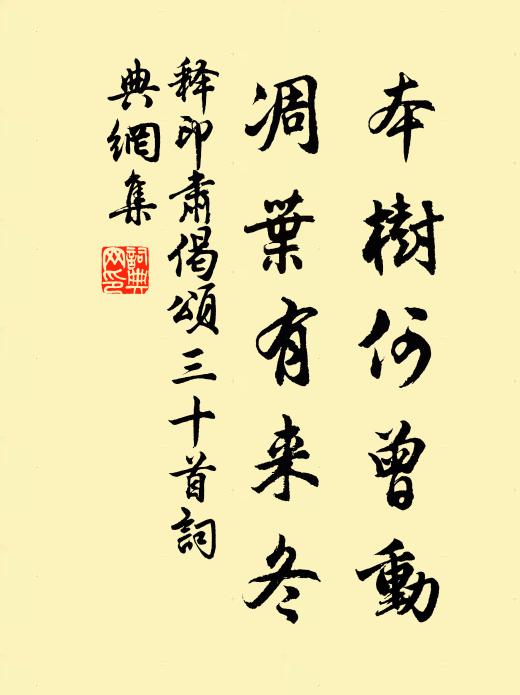 本樹何曾動
凋葉有来冬
释印肃偈頌三十首詞
典網集
詞典
网印